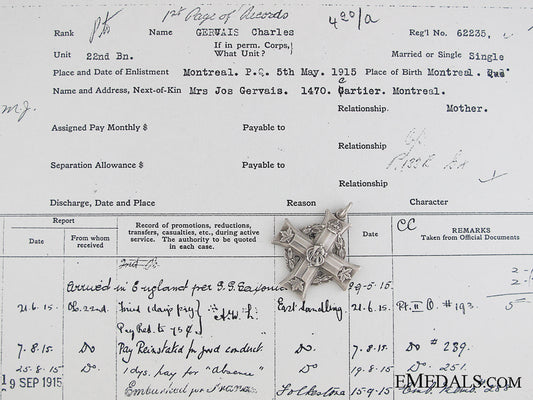 1st Page of Records
420/a
Rank Pte Name GERVAIS Charles Reg'l No. 62235.
If in perm. Corps,
Unit 22nd Bn. What Unit? Married or Single Single
Place and Date of Enlistment Montreal. P.Q. 5th May. 1915 Place of Birth Montreal. Que
Name and Address, Next-of-Kin Mrs Jos Gervais. 1470. Cartier. Montreal.
M.J.
Relationship. Mother.
Assigned Pay Monthly $ Payable to
Relationship
Separation Allowance $ Payable to
Relationship
Discharge, Date and Place Reason Character
Report Record of promotions, reductions, CC REMARKS
transfers, casualties, etc., during active Taken from Official Documents
Date From whom service. The authority to be quoted Date
received in each case.
Arrived in England per S.S. Saxonia 29-5-15. 2-
2-
21.6.15 OC. 22nd. Fined 1 days pay A.W.L. East Sandling 21.6.15 Pt. II O. #193. 5
Pay Red. to 75¢
7.8.15 Do Pay Reinstated for good conduct. Do 7.8.15 Do #239.
25.8.15 Do. 1 dys. pay for "Absence" Do. 19.8.15 Do 251.
19 SEP 1915 Embarked for France Folkestone 15-9-15
EMEDALS.COM